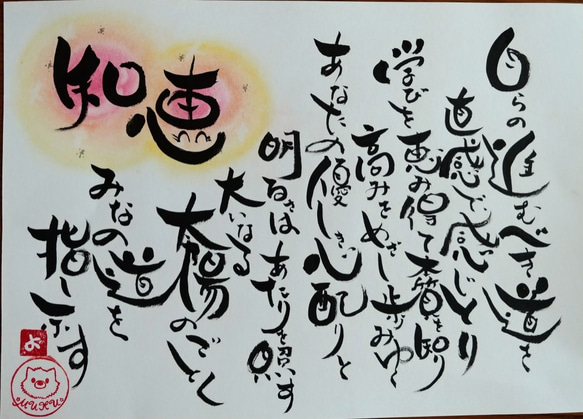 知恵
自らの進むべき道を
直感で感じとり
学びを恵み得て本質を知り
高みをめざし歩みゆく
あなたの優しき心配りと
明るさは あたりを照らす
大いなる
太陽のごとく
みなの道を
指し示す